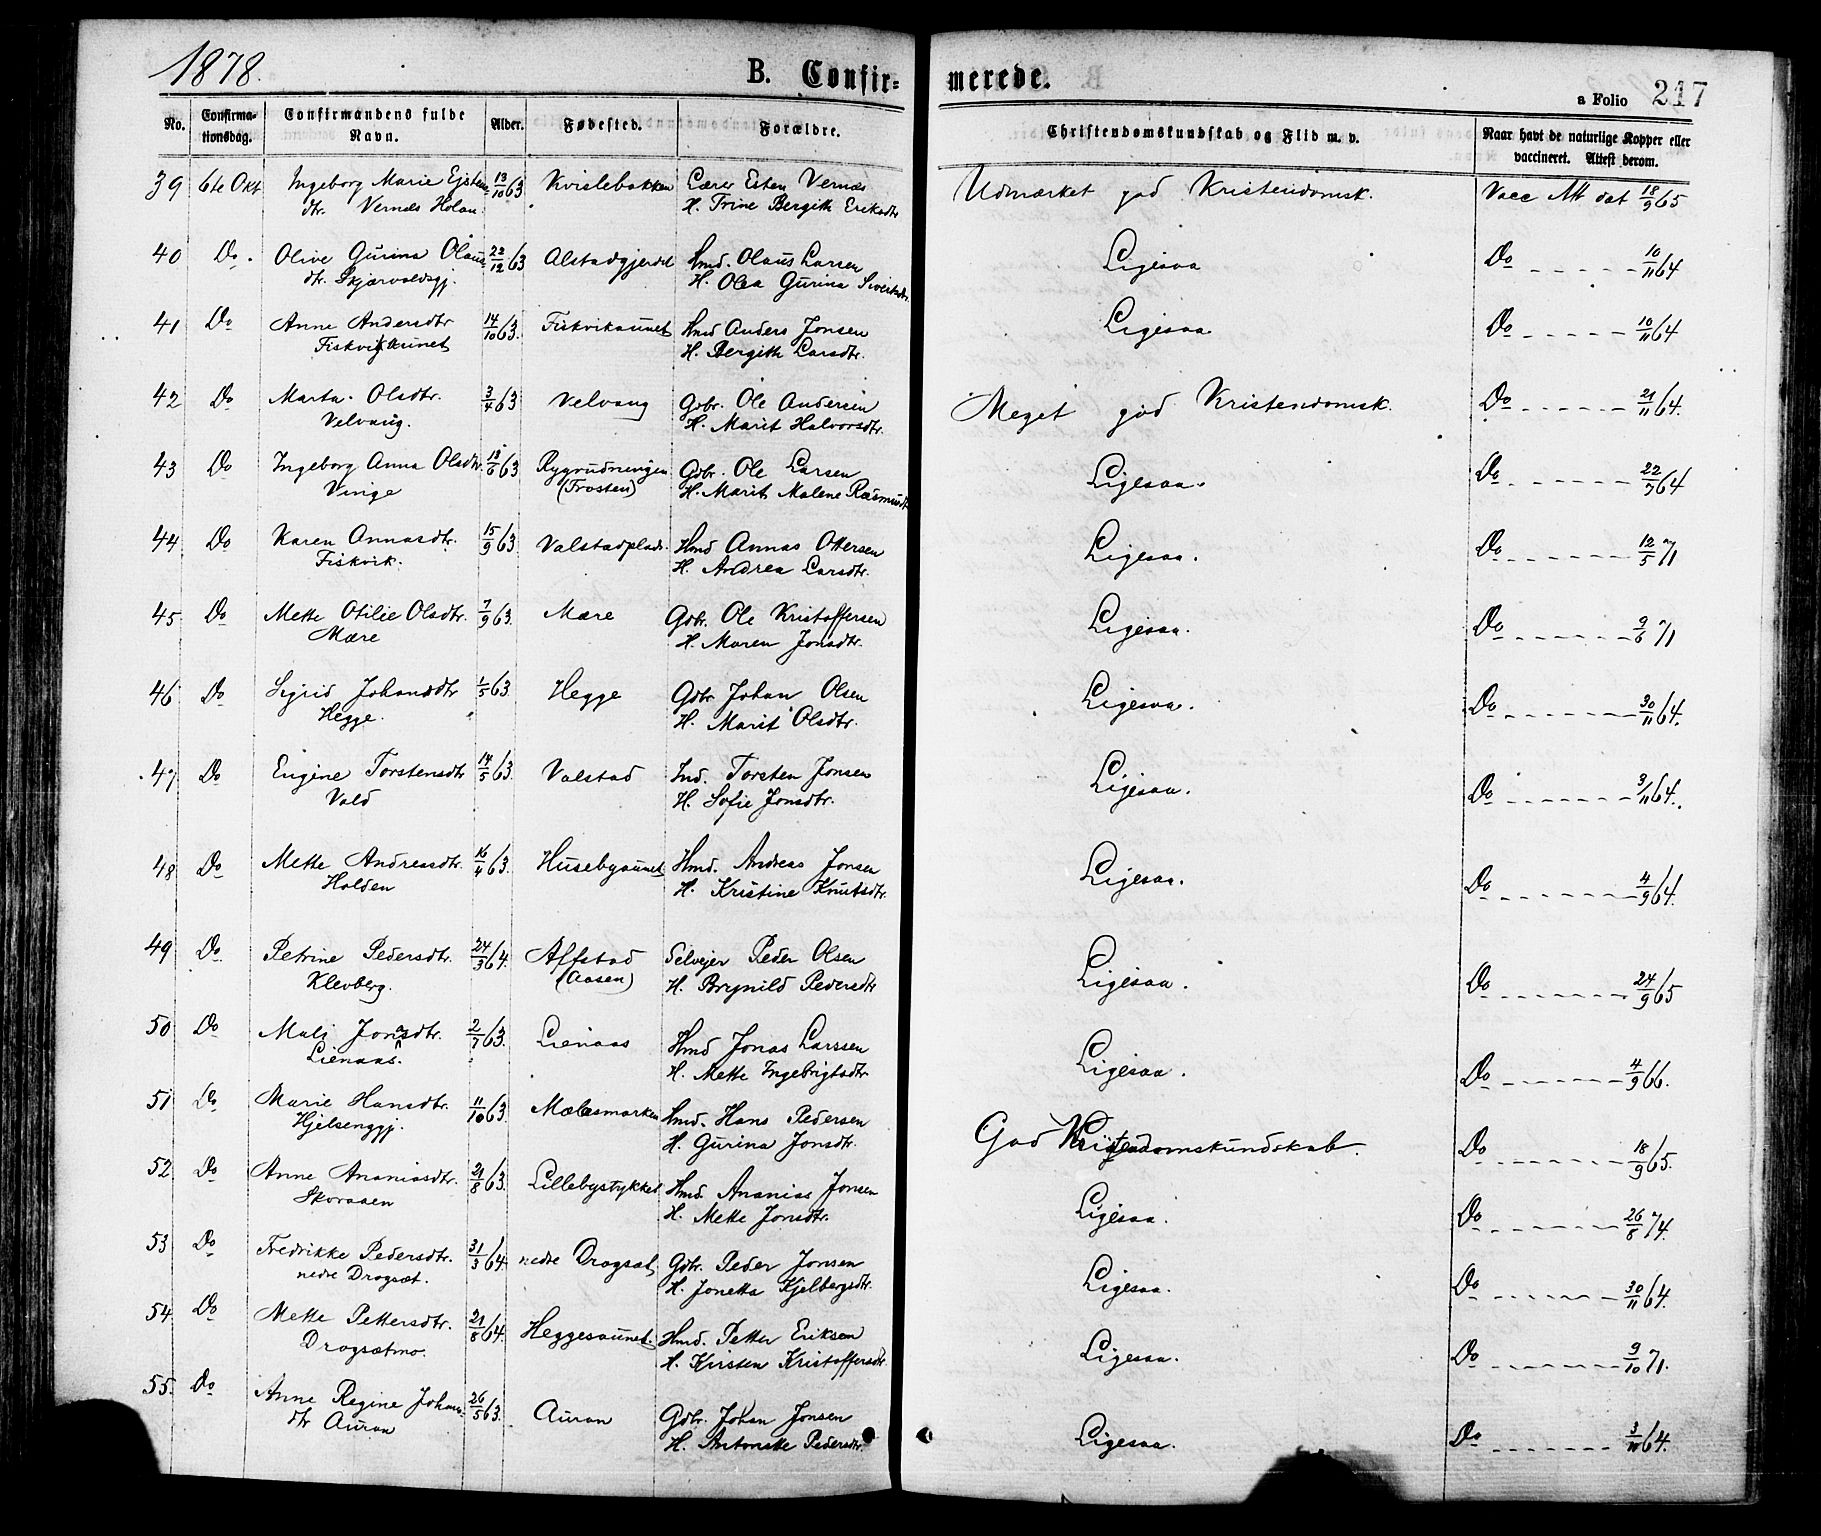 1878.
B. Confir-
merede.
a Folio 217
No.
Confirma-
tionsdag.
Confirmandens fulde
Navn.
Alder.
Fødested.
Forældre.
Christendomskundskab og Flid m. v.
Naar havt de naturlige Kopper eller
vaccineret. Attest derom.
39 6te Okt Ingeborg Marie Ejstens- 13/10 63 Kvislebakken Lærer Esten Vernæs Udmærket god Kristendomsk. Vacc Att dat 18/9 65
dtr. Vernæs Holan. H. Trine Bergith Eriksdtr
40 Do. Olive Gurina Olaus- 22/12 63 Alstadgjerdet Hmd. Olaus Larsen Ligesaa Do 10/11 64
dtr. Skjærvoldsgj. H. Olea Gurina Sivertsdtr.
41 Do Anne Andersdtr 14/10 63. Fiskvikaunet Hmd Anders Jonsen Ligesaa Do 10/11 64
Fiskvikaunet H. Bergith Larsdtr.
42 Do Marta Olsdtr. 3/4 63 Velvang Gbr. Ole Andersen Meget god Kristendomsk. Do 21/11 64.
Velvang. H. Marit Halvorsdtr.
43 Do Ingeborg Anna Olsdtr. 18/6 63 Rygrudningen Gdbr. Ole Larsen Ligesaa. Do 22/7 64
Vinge (Frosten) H. Marit Malene Rasmusdtr
44 Do Karen Annasdtr. 15/9 63. Valstadplads. Hmd Annas Ottersen Ligesaa. Do 12/5 71
Fiskvik. H. Andrea Larsdtr.
45 Do Mette Otilie Olsdtr. 7/9 63. Mære Gdbr. Ole Kristoffersen Ligesaa. Do 9/6 71
Mære H. Maren Jonsdtr.
46 Do Sigrid Johansdtr 1/5 63. Hegge Gdbr. Johan Olsen Ligesaa. Do 30/11 64.
Hegge. H. Marit Olsdtr.
47 Do Engine Torstensdtr 14/5 63. Valstad Ind. Torsten Jonsen Ligesaa. Do 3/11 64.
Vold H. Sofie Jonsdtr.
48 Do Mette Andreasdtr. 16/4 63. Husebyaunet Hmd. Andreas Jonsen Ligesaa. Do 4/9 64.
Holden H. Kristine Knutsdtr.
49 Do Petrine Pedersdtr. 24/3 64. Affstad Selvejer Peder Olsen Ligesaa. Do 24/9 65
Klevberg. (Aasen) H. Brynild Pedersdtr
50 Do Mali Jonasdtr. 2/7 63. Lienaas Hmd Jonas Larssen Ligesaa. Do 4/9 66.
Lienaas. H. Mette Ingebrigtsdtr
51 Do Marie Hansdtr. 11/10 63. Mælasmarken Hmd. Hans Pedersen God Kristendomskundskab. Do 18/9 65.
Hjelsenggj. H. Gurina Jonsdtr.
52 Do Anne Ananiasdtr. 21/8 63. Lillebystykket Hmd. Ananias Jonsen Ligesaa. Do 26/8 74.
Skoraaen H. Mette Jonsdtr.
53 Do Fredrikke Pedersdtr. 31/3 64. nedre Dragsæt. Gdbr. Peder Jonsen Ligesaa. Do 30/11 64.
nedre Dragsæt. H. Jonetta Kjelbergsdtr.
54 Do Mette Pettersdtr. 21/8 64. Heggesaunet. Hmd. Petter Eriksen Ligesaa. Do 9/10 71.
Dragsætmo. H. Kirsten Kristoffersdtr.
55. Do Anne Regine Johans- 26/5 63. Auran Gdbr. Johan Jonsen Ligesaa. Do 3/10 64.
dtr Auran H. Antonette Pedersdtr